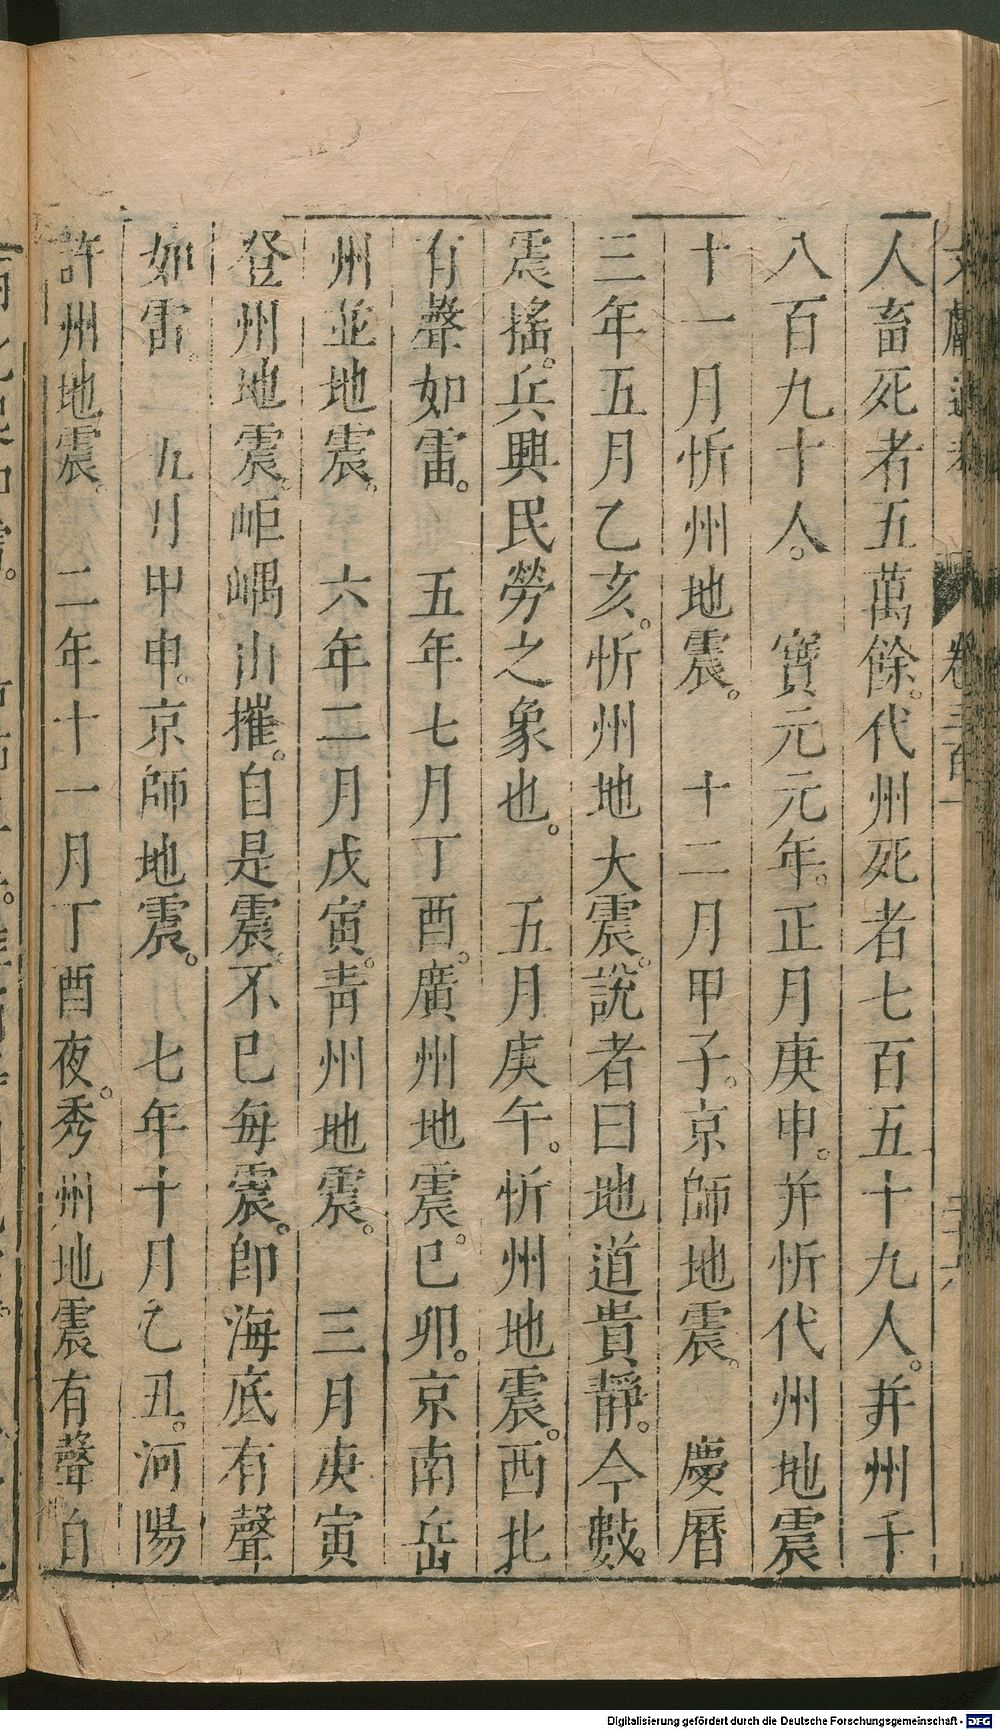 文獻通考 卷三百一 二十六
人畜死者五萬餘。代州死者七百五十九人。并州千
八百九十人。 寶元元年。正月庚申。并忻代州地震
十一月忻州地震。 十二月甲子。京師地震。 慶曆
三年五月乙亥。忻州地大震。說者曰地道貴靜。今數。
震搖。兵興民勞之象也。 五月庚午。忻州地震。西北
有聲如雷。 五年七月丁酉。廣州地震。巳卯。京南岳
州並地震。 六年二月戊寅。青州地震。 三月庚寅
登州地震。岠嵎山摧。自是震。不已每震。卽海底有聲
如雷。 九月甲申。京師地震。 七年十月乙丑。河陽
許州地震。 二年十一月丁酉夜。秀州地震有聲自
Digitalisierung gefördert durch die Deutsche Forschungsgemeinschaft - DFG